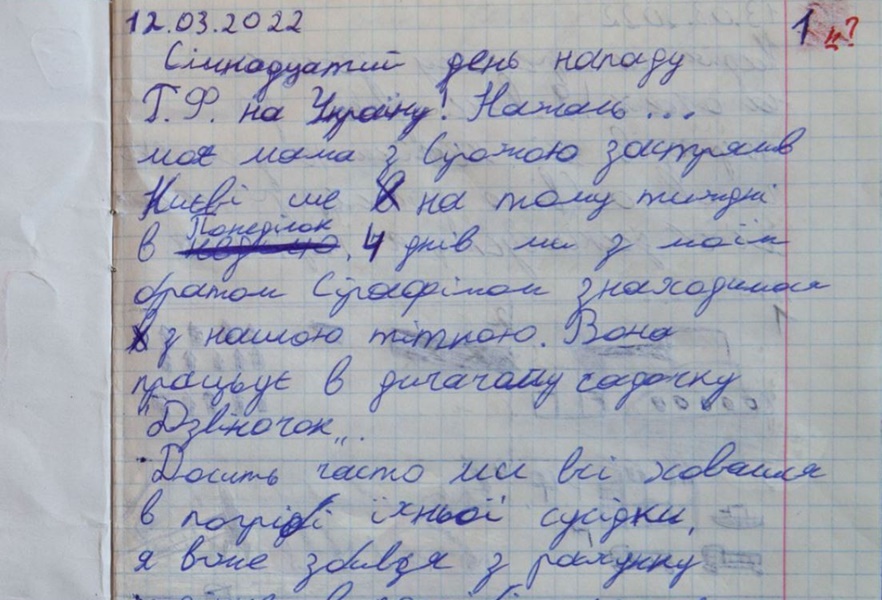 12.03.2022
1 к?
Сімнадцятий день нападу
Г.Ф. на Україну! Нажаль...
моя мама з Сірожою застряв
Києві ше в на тому тиждні
в Понеділок, 4 днів ми з моїм
братом Сірафімом знаходимося
з нашою тіткою. Вона
працьує в дичачому садочку
"Дзвіночок„.
Досить часто ми всі ховаємся
в погрібі їхньої сусідки,
я вже збився з рахунку